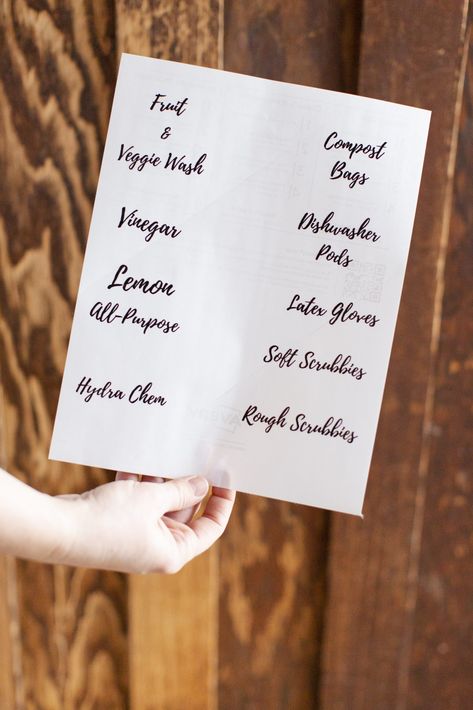 Fruit
&
Veggie Wash
Vinegar
Lemon
All-Purpose
Hydra Chem
Compost
Bags
Dishwasher
Pods
Latex Gloves
Soft Scrubbies
Rough Scrubbies